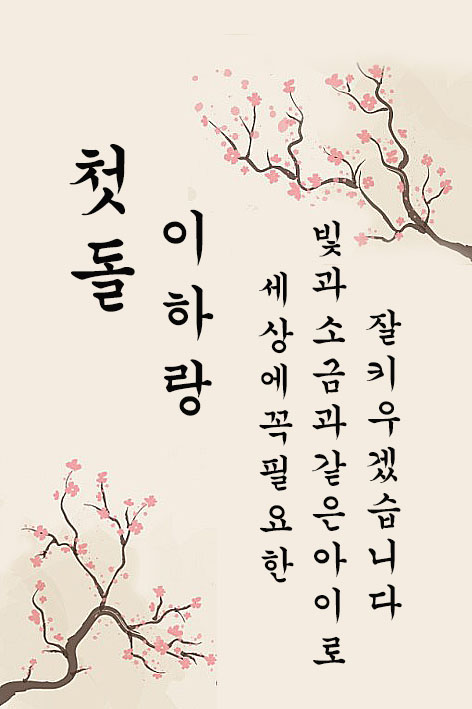 첫돌
이하랑
세상에꼭필요한
빛과소금과같은아이로
잘키우겠습니다